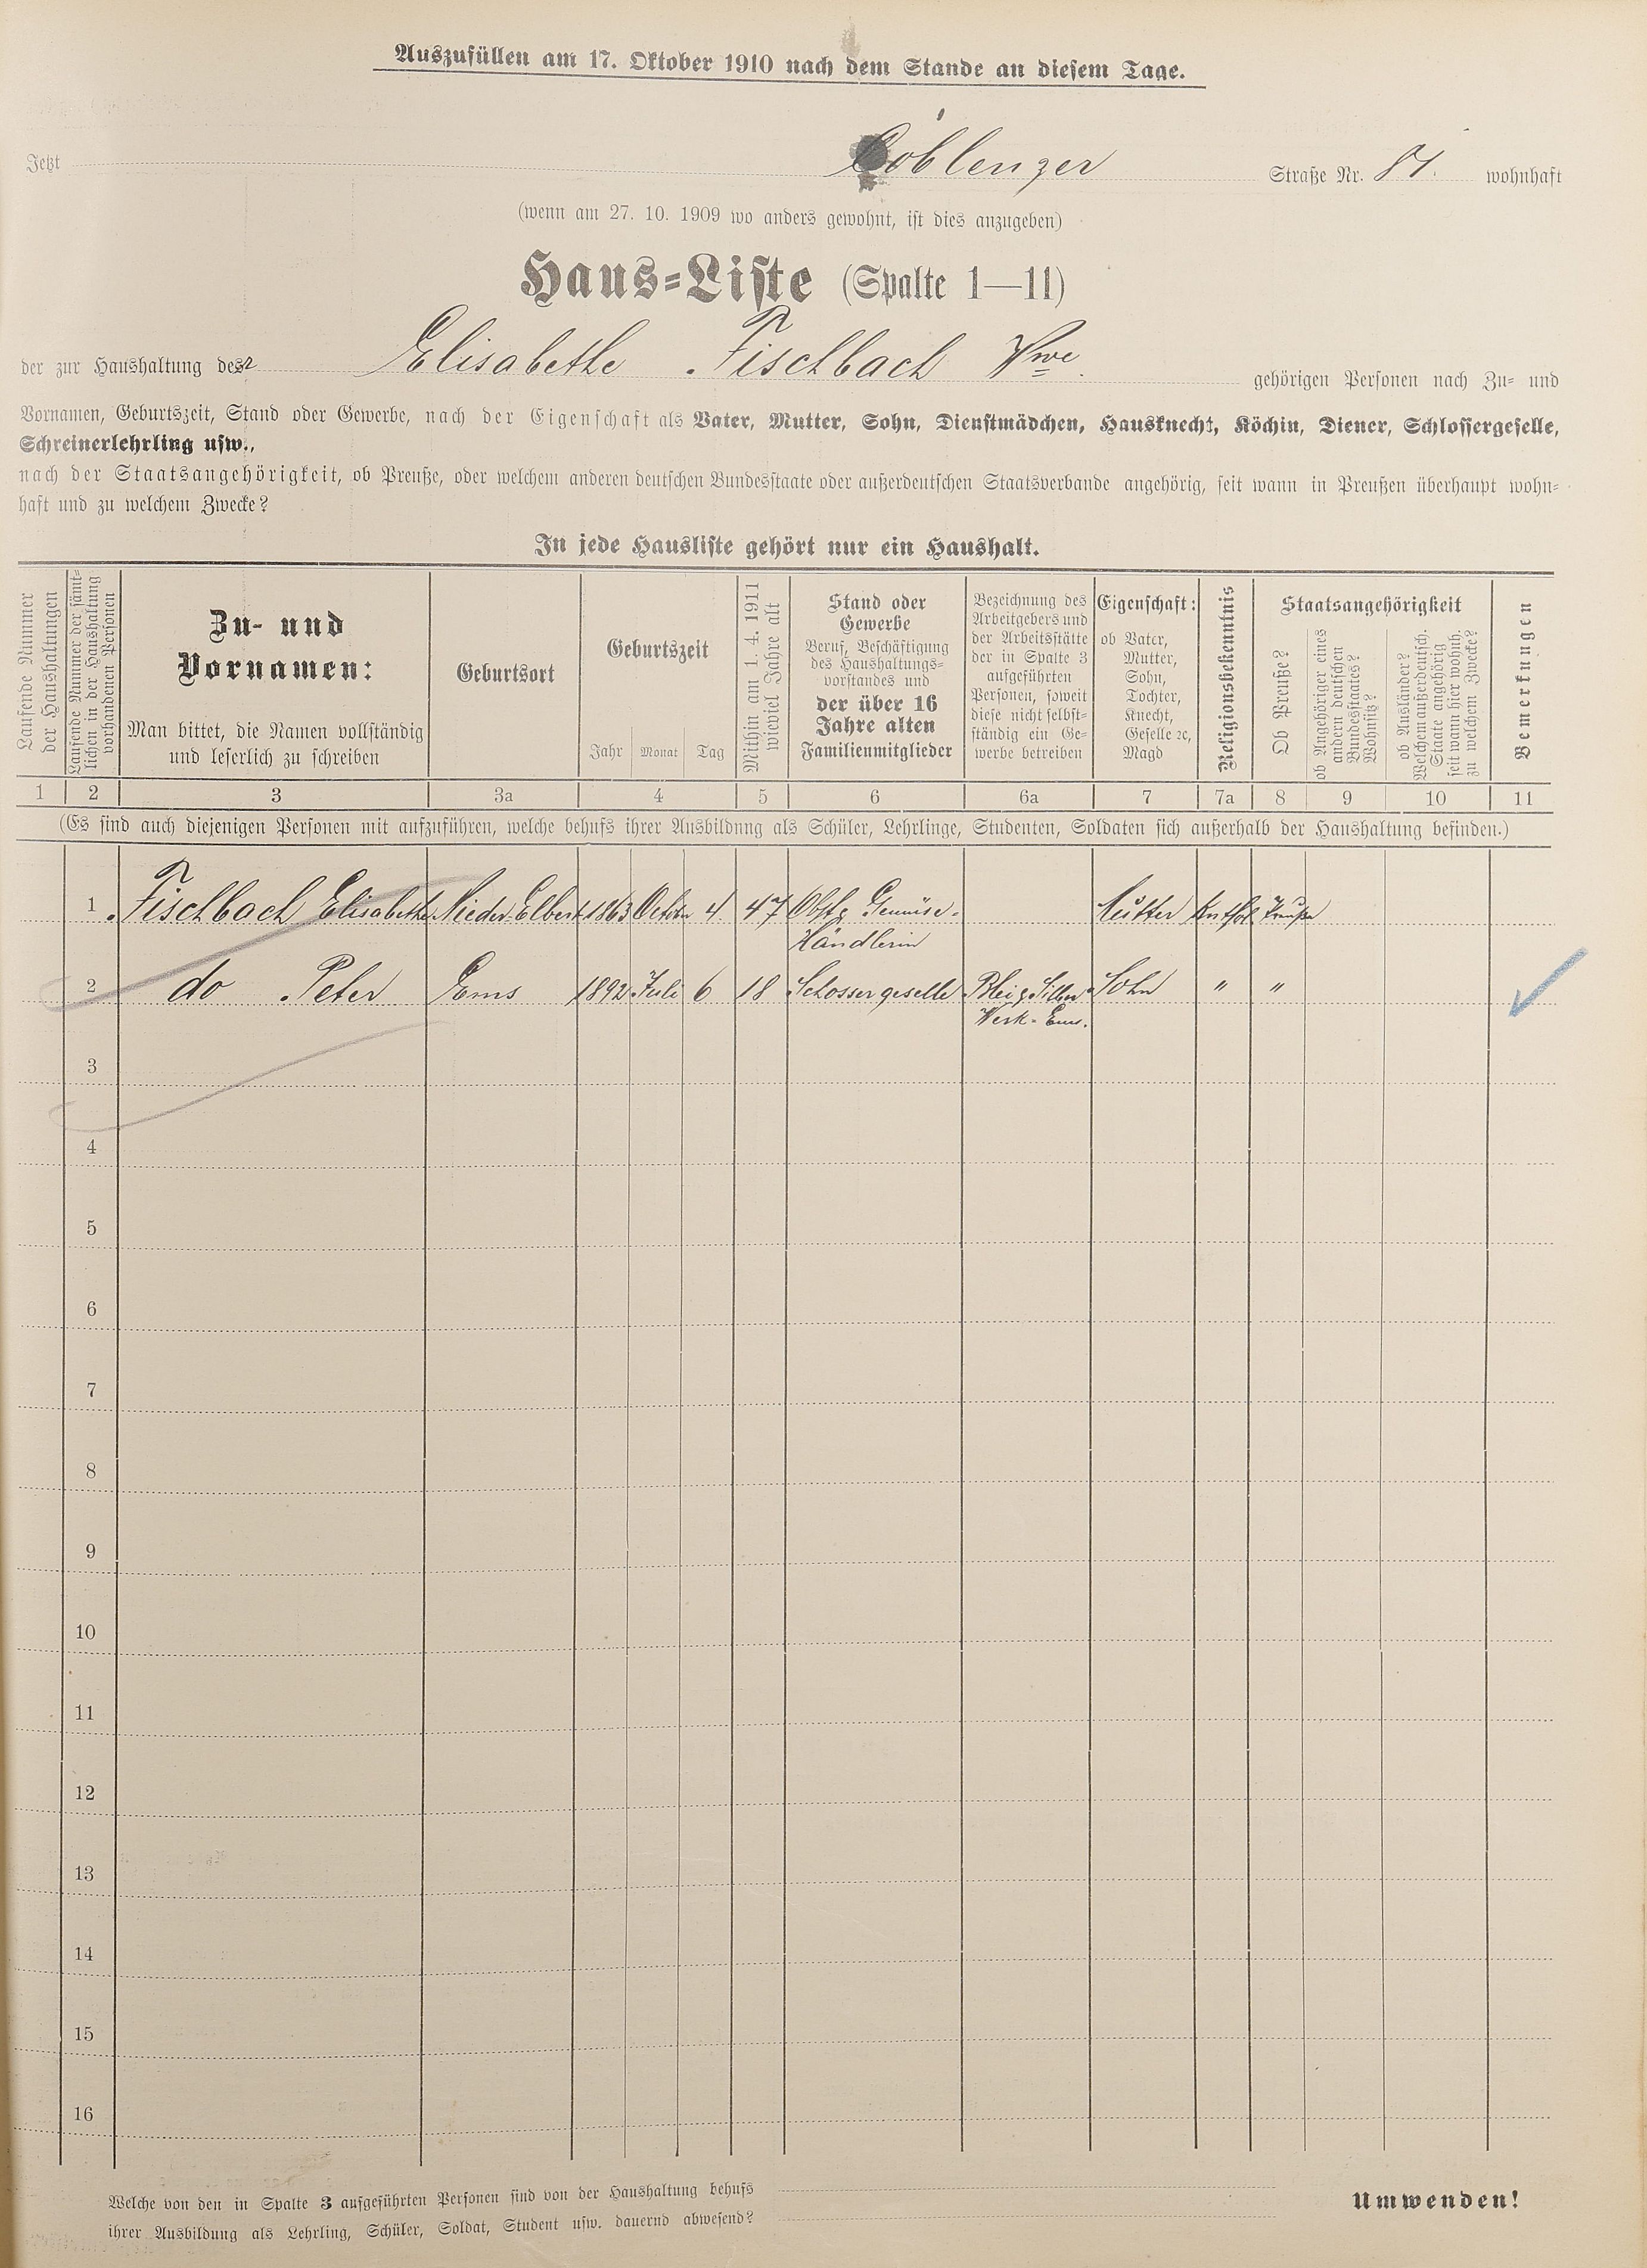 Auszufüllen am 17. Oktober 1910 nach dem Stande an diesem Tage.
Jetzt Coblenzer Straße Nr. 81. wohnhaft
(wenn am 27. 10. 1909 wo anders gewohnt, ist dies anzugeben)
Haus-Liste (Spalte 1—11)
der zur Haushaltung des Elisabethe Fischbach Wwe. gehörigen Personen nach Zu- und
Vornamen, Geburtszeit, Stand oder Gewerbe, nach der Eigenschaft als Vater, Mutter, Sohn, Dienstmädchen, Hausknecht, Köchin, Diener, Schlossergeselle,
Schreinerlehrling usw.,
nach der Staatsangehörigkeit, ob Preuße, oder welchem anderen deutschen Bundesstaate oder außerdeutschen Staatsverbande angehörig, seit wann in Preußen überhaupt wohn-
haft und zu welchem Zwecke?
In jede Hausliste gehört nur ein Haushalt.
Laufende Nummer
der Haushaltungen
Laufende Nummer der sämt-
lichen in der Haushaltung
vorhandenen Personen
Zu- und
Vornamen:
Man bittet, die Namen vollständig
und leserlich zu schreiben
Geburtsort
Geburtszeit
Jahr Monat Tag
Mithin am 1. 4. 1911
wieviel Jahre alt
Stand oder
Gewerbe
Beruf, Beschäftigung
des Haushaltungs-
vorstandes und
der über 16
Jahre alten
Familienmitglieder
Bezeichnung des
Arbeitgebers und
der Arbeitsstätte
der in Spalte 3
aufgeführten
Personen, soweit
diese nicht selbst-
ständig ein Ge-
werbe betreiben
Eigenschaft:
ob Vater,
Mutter,
Sohn,
Tochter,
Knecht,
Geselle ec,
Magd
Religionsbekenntnis
Staatsangehörigkeit
Ob Preuße?
ob Angehöriger eines
andern deutschen
Bundesstaates?
Wohnsitz?
ob Ausländer?
Welchem außerdeutsch.
Staate angehörig
seit wann hier wohnh.
zu welchem Zwecke?
Bemerkungen
1 2 3 3a 4 5 6 6a 7 7a 8 9 10 11
(Es sind auch diejenigen Personen mit aufzuführen, welche behufs ihrer Ausbildung als Schüler, Lehrlinge, Studenten, Soldaten sich außerhalb der Haushaltung befinden.)
1 Fischbach Elisabethe Nieder-Elbert 1863 October 4 47 Obst & Gemüse- Mutter Kathol. Preuße
Händlerin
2 do Peter Ems 1892 Juli 6 18 Schossergeselle Blei & Silber Sohn " "
Werk-Ems.
3
4
5
6
7
8
9
10
11
12
13
14
15
16
Welche von den in Spalte 3 aufgeführten Personen sind von der Haushaltung behufs
ihrer Ausbildung als Lehrling, Schüler, Soldat, Student usw. dauernd abwesend?
Umwenden!